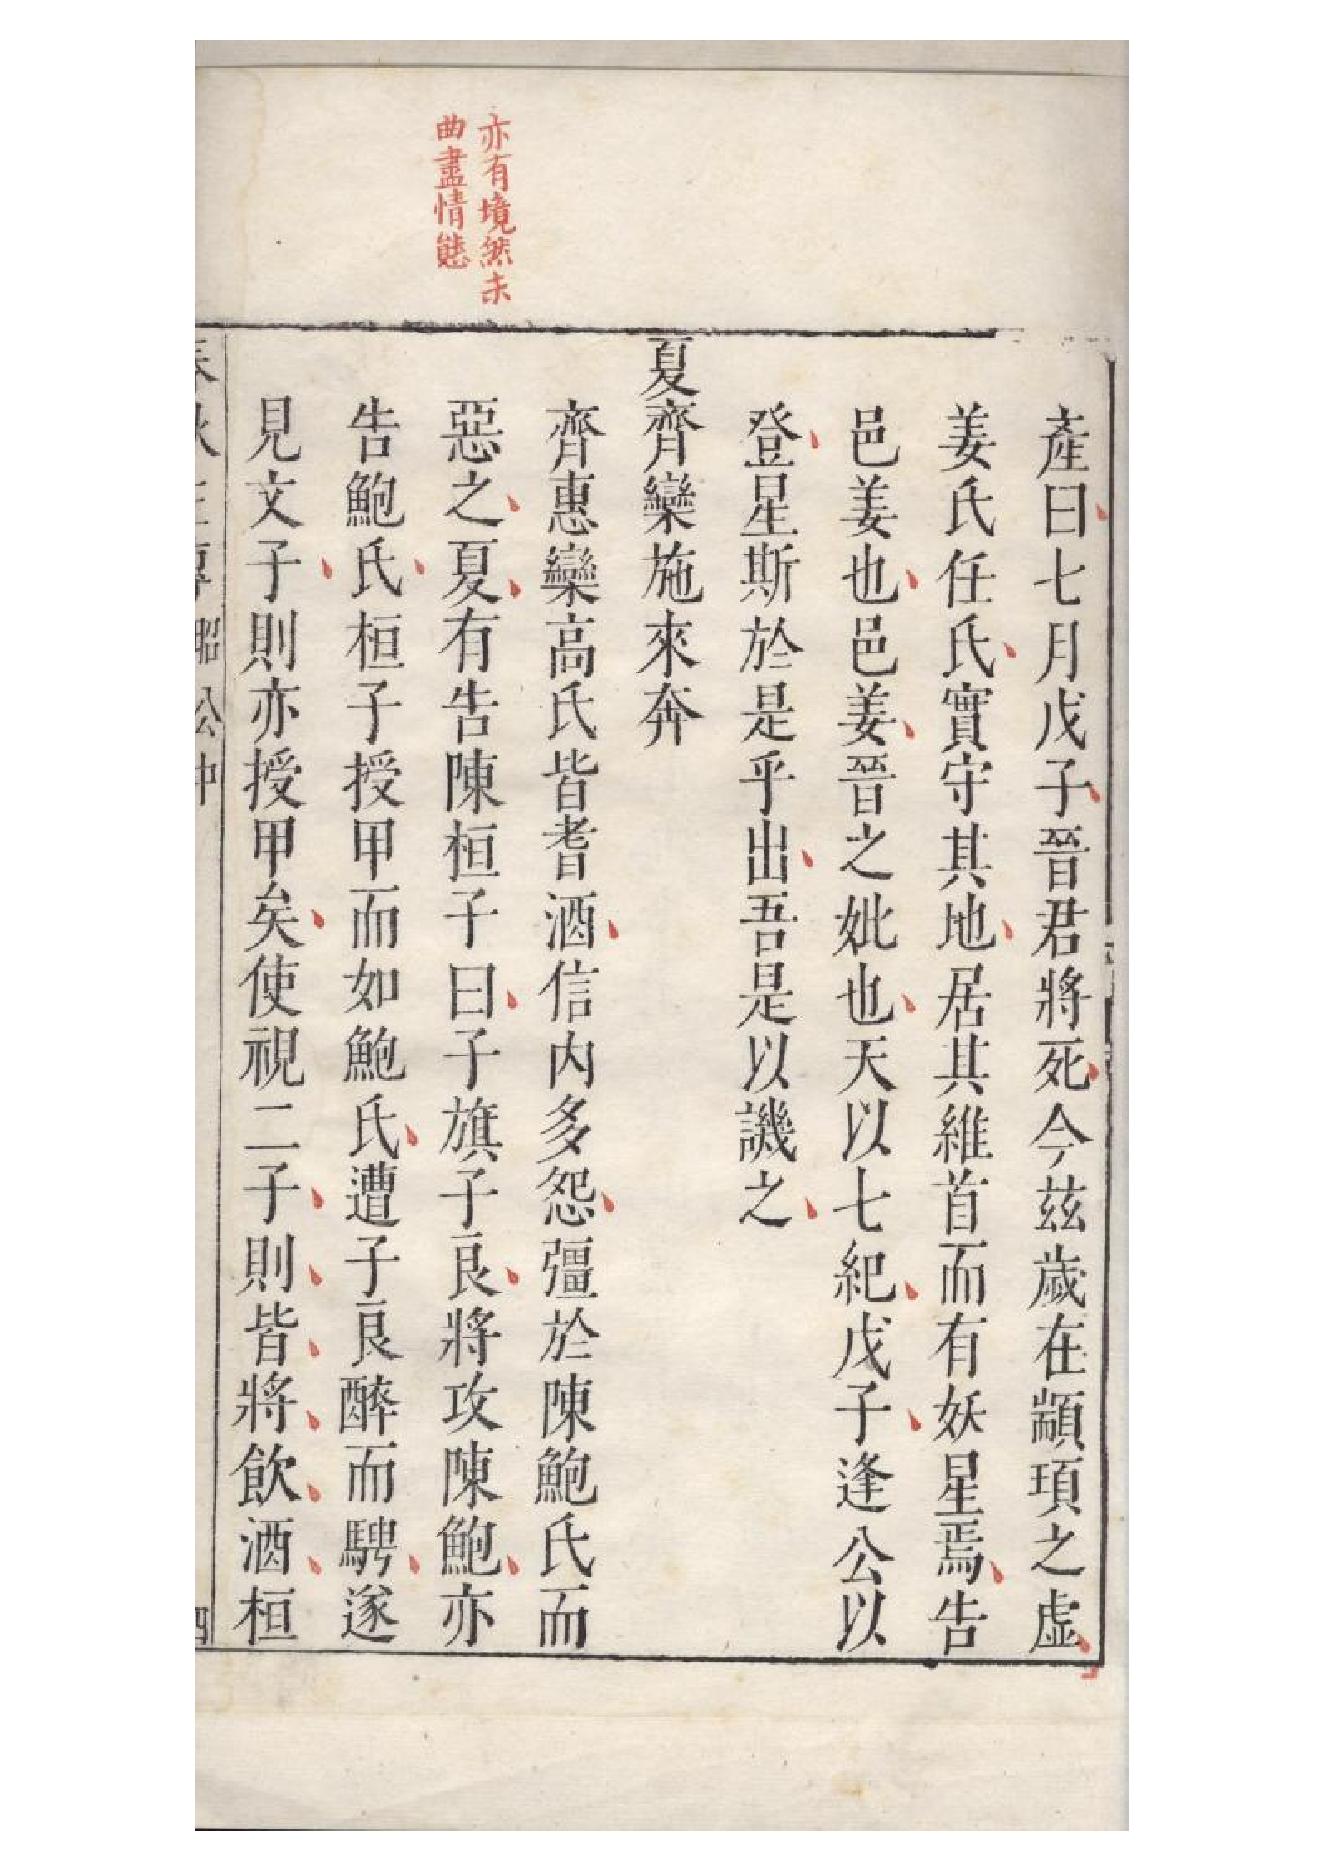 亦有境然未
曲盡情態
產曰七月戊子晉君將死今茲歲在顓頊之虛
姜氏任氏實守其地居其維首而有妖星焉告
邑姜也邑姜晉之妣也天以七紀戊子逢公以
登星斯於是乎出吾是以譏之
夏齊欒施來奔
齊惠欒高氏皆耆酒信内多怨彊於陳鮑氏而
惡之夏有告陳桓子曰子旗子良將攻陳鮑亦
告鮑氏桓子授甲而如鮑氏遭子良醉而騁遂
見文子則亦授甲矣使視二子則皆將飲酒桓
春秋左傳 昭公中 四